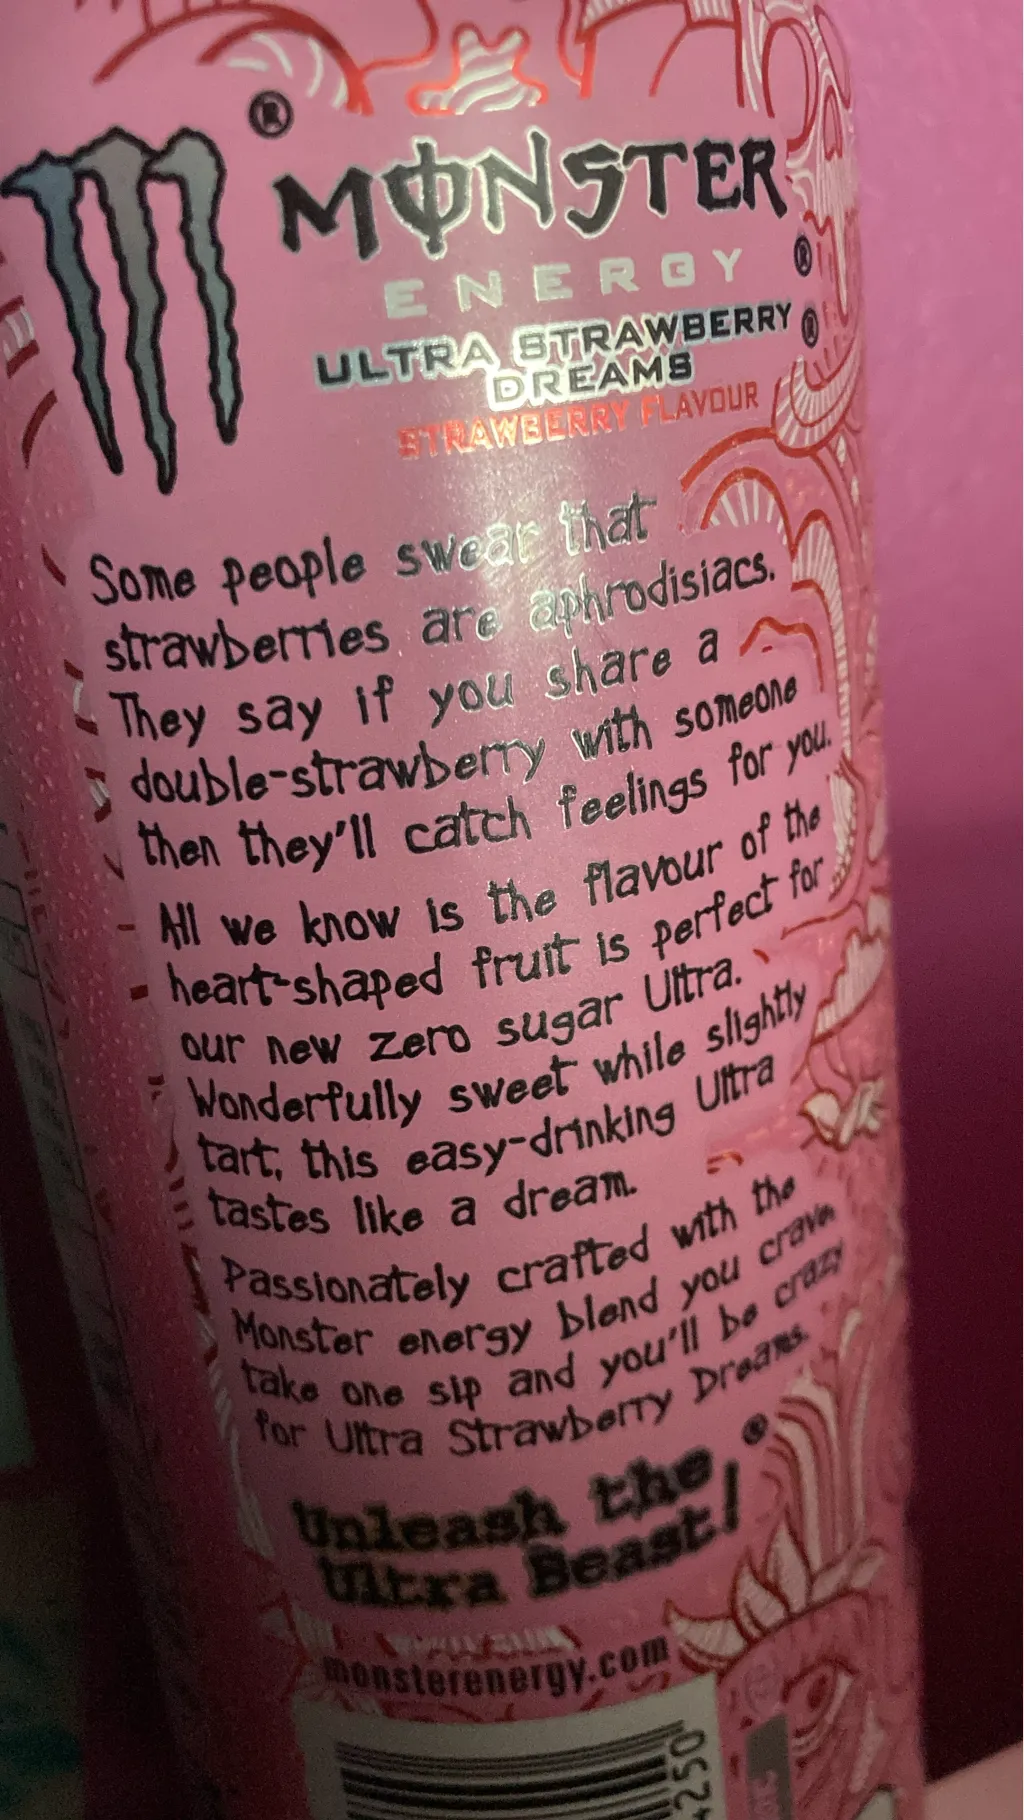 ®
MONSTER
ENERGY ®
ULTRA STRAWBERRY ®
DREAMS
STRAWBERRY FLAVOUR
Some people swear that
strawberries are aphrodisiacs.
They say if you share a
double-strawberry with someone
then they'll catch feelings for you.
All we know is the flavour of the
heart-shaped fruit is perfect for
our new zero sugar Ultra.
Wonderfully sweet while slightly
tart, this easy-drinking Ultra
tastes like a dream.
Passionately crafted with the
Monster energy blend you crave,
take one sip and you'll be crazy
for Ultra Strawberry Dreams.
Unleash the ®
Ultra Beast!
monsterenergy.com